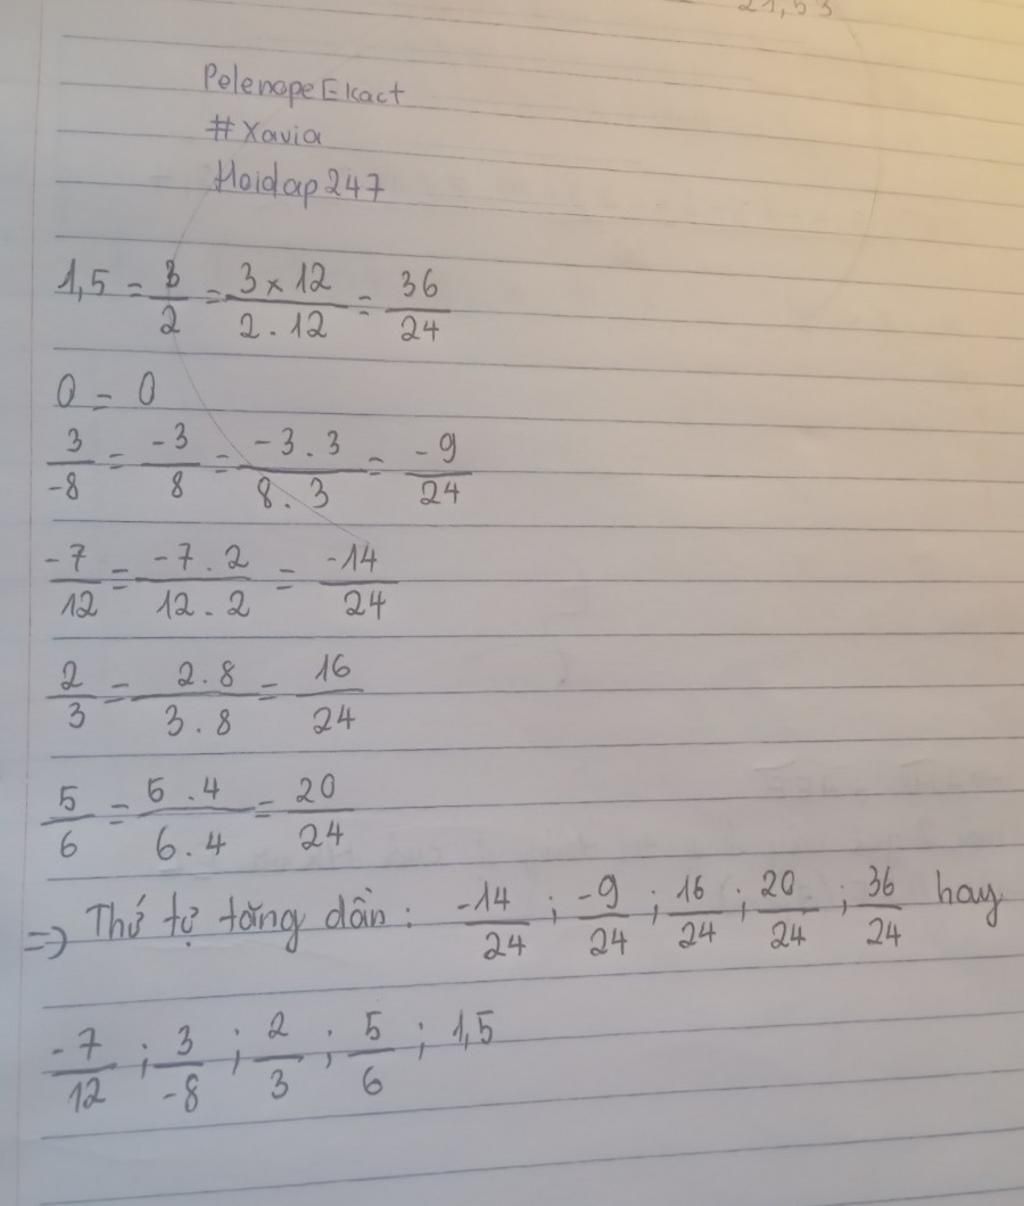 21,53
PelenopeEkact
#Xavia
Hoidap247
1,5 = 3/2 = 3 x 12/2 . 12 = 36/24
0 = 0
3/-8 = -3/8 = -3 . 3/8 . 3 = -9/24
-7/12 = -7 . 2/12 . 2 = -14/24
2/3 = 2 . 8/3 . 8 = 16/24
5/6 = 5 . 4/6 . 4 = 20/24
=> Thứ tự tăng dần : -14/24 ; -9/24 ; 16/24 ; 20/24 ; 36/24 hay
-7/12 ; 3/-8 ; 2/3 ; 5/6 ; 1,5